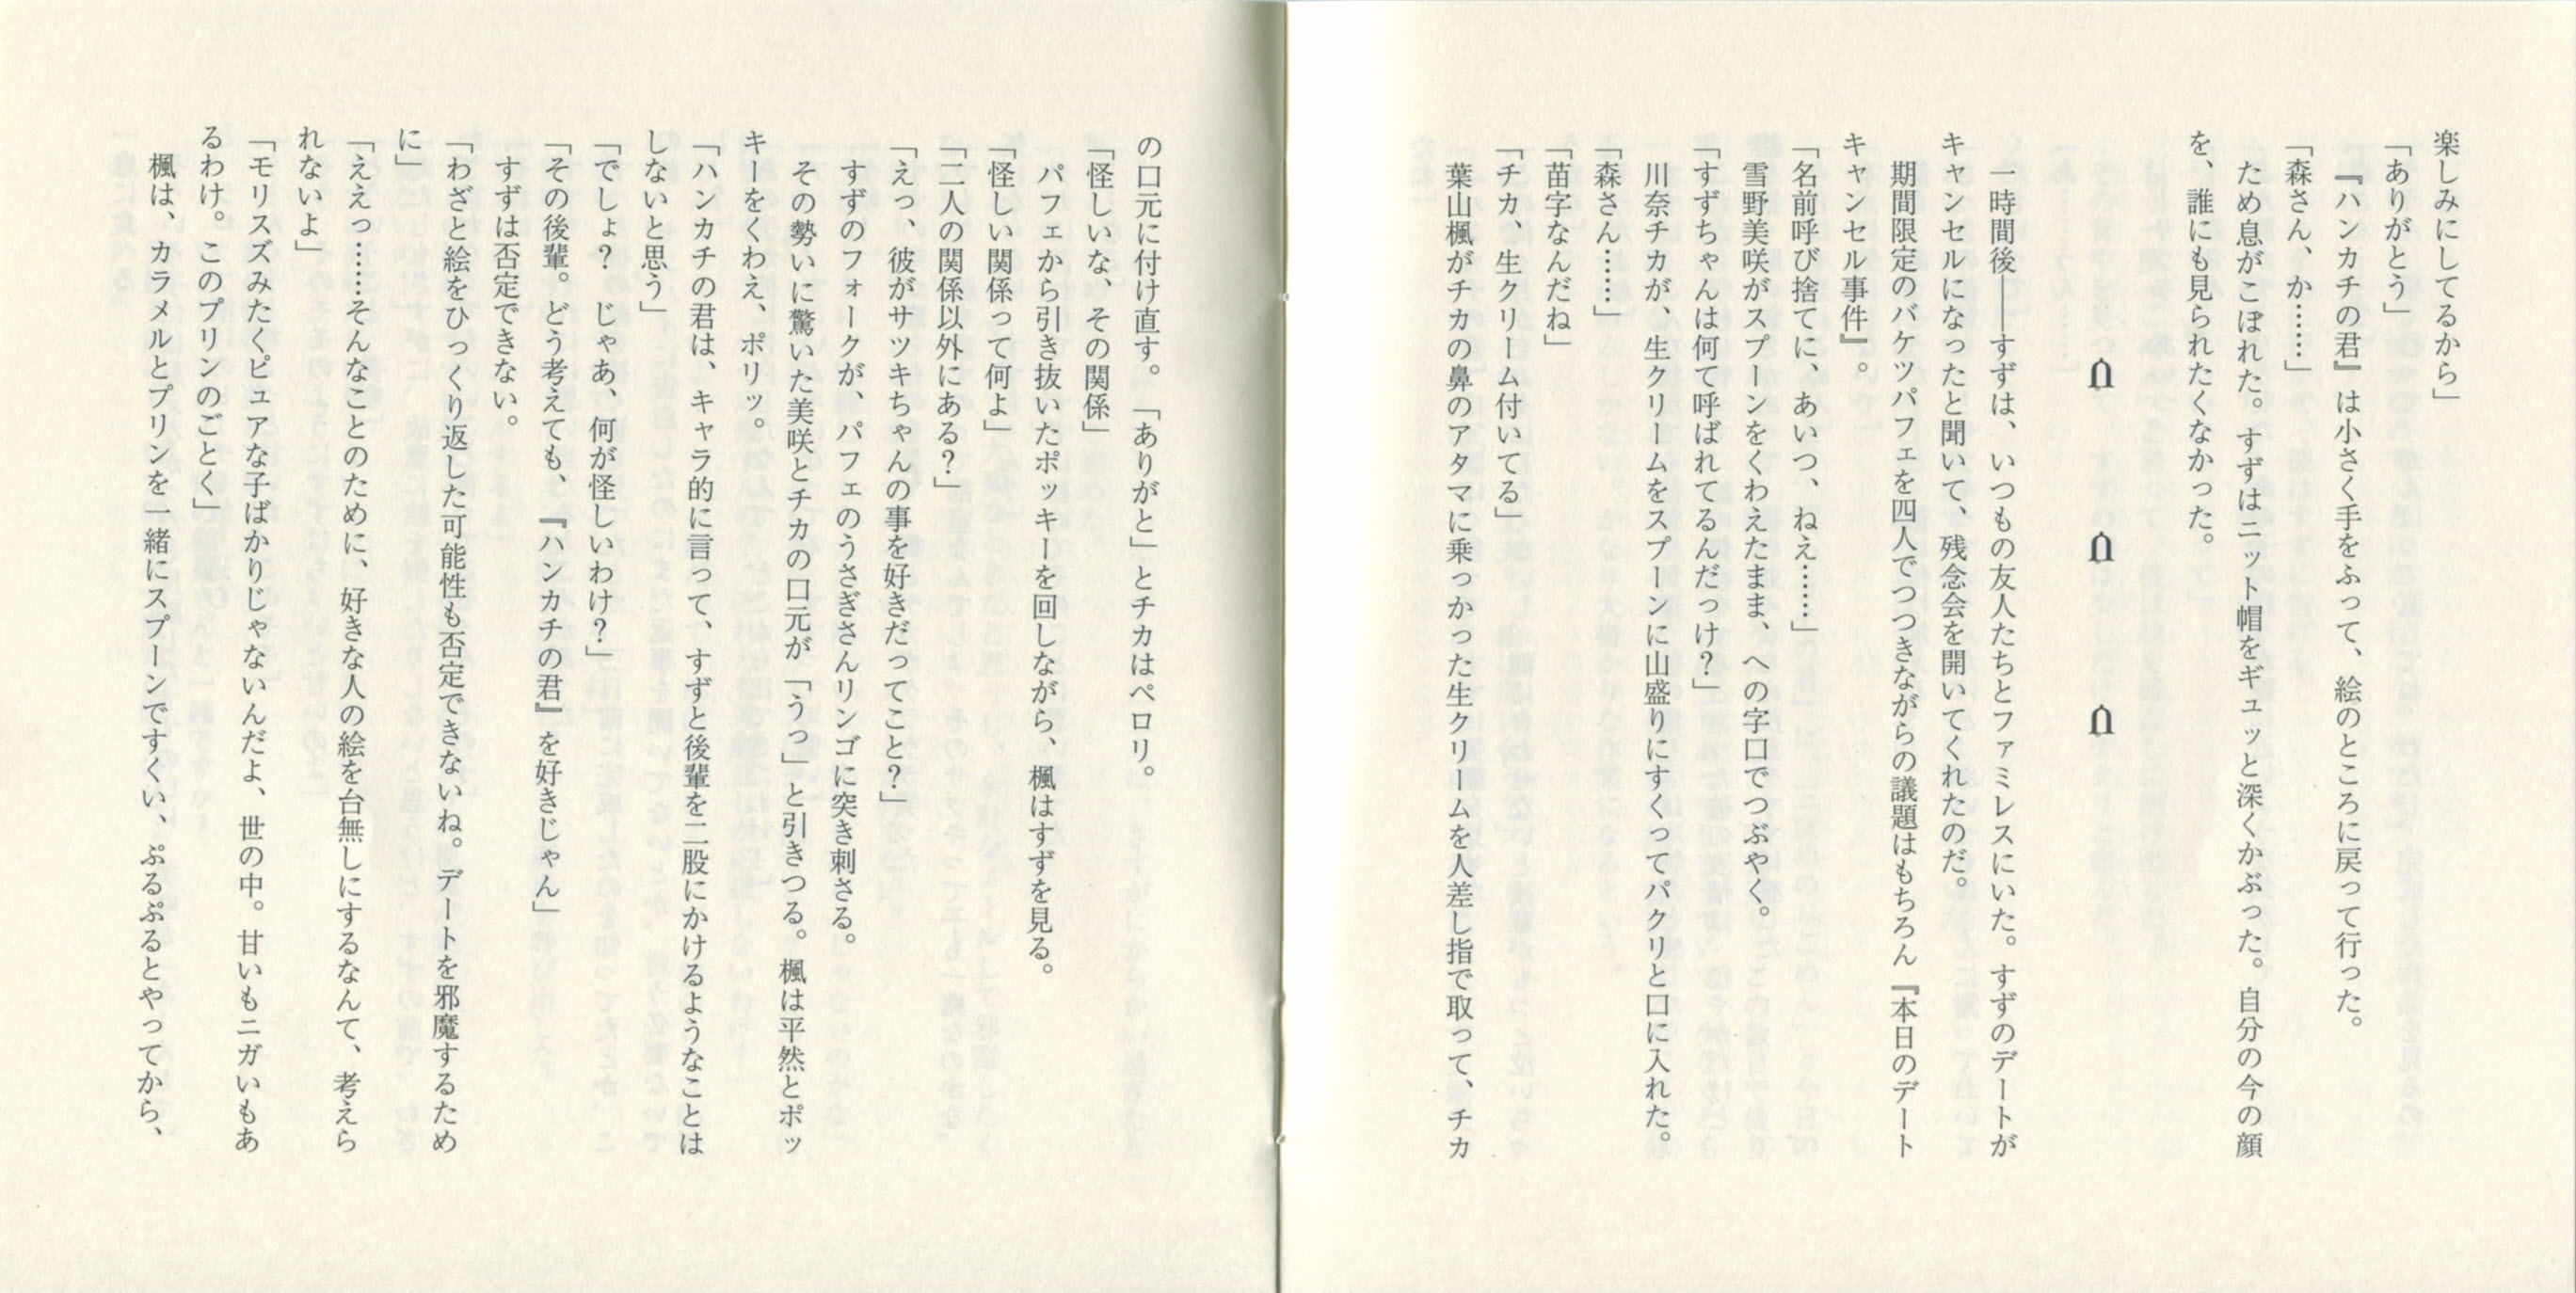 楽しみにしてるから」
「ありがとう」
『ハンカチの君』は小さく手をふって、絵のところに戻って行った。
「森さん、か……」
ため息がこぼれた。すずはニット帽をギュッと深くかぶった。自分の今の顔
を、誰にも見られたくなかった。
一時間後――すずは、いつもの友人たちとファミレスにいた。すずのデートが
キャンセルになったと聞いて、残念会を開いてくれたのだ。
期間限定のバケツパフェを四人でつつきながらの議題はもちろん『本日のデート
キャンセル事件』。
「名前呼び捨てに、あいつ、ねえ……」
雪野美咲がスプーンをくわえたまま、への字口でつぶやく。
「すずちゃんは何て呼ばれてるんだっけ？」
川奈チカが、生クリームをスプーンに山盛りにすくってパクリと口に入れた。
「森さん……」
「苗字なんだね」
「チカ、生クリーム付いてる」
葉山楓がチカの鼻のアタマに乗っかった生クリームを人差し指で取って、チカ
の口元に付け直す。「ありがと」とチカはペロリ。
「怪しいな、その関係」
パフェから引き抜いたポッキーを回しながら、楓はすずを見る。
「怪しい関係って何よ」
「二人の関係以外にある？」
「えっ、彼がサツキちゃんの事を好きだってこと？」
すずのフォークが、パフェのうさぎさんリンゴに突き刺さる。
その勢いに驚いた美咲とチカの口元が「うっ」と引きつる。楓は平然とポッ
キーをくわえ、ポリッ。
「ハンカチの君は、キャラ的に言って、すずと後輩を二股にかけるようなことは
しないと思う」
「でしょ？　じゃあ、何が怪しいわけ？」
「その後輩。どう考えても、『ハンカチの君』を好きじゃん」
すずは否定できない。
「わざと絵をひっくり返した可能性も否定できないね。デートを邪魔するため
に」
「ええっ……そんなことのために、好きな人の絵を台無しにするなんて、考えら
れないよ」
「モリスズみたくピュアな子ばかりじゃないんだよ、世の中。甘いもニガいもあ
るわけ。このプリンのごとく」
楓は、カラメルとプリンを一緒にスプーンですくい、ぷるぷるとやってから、